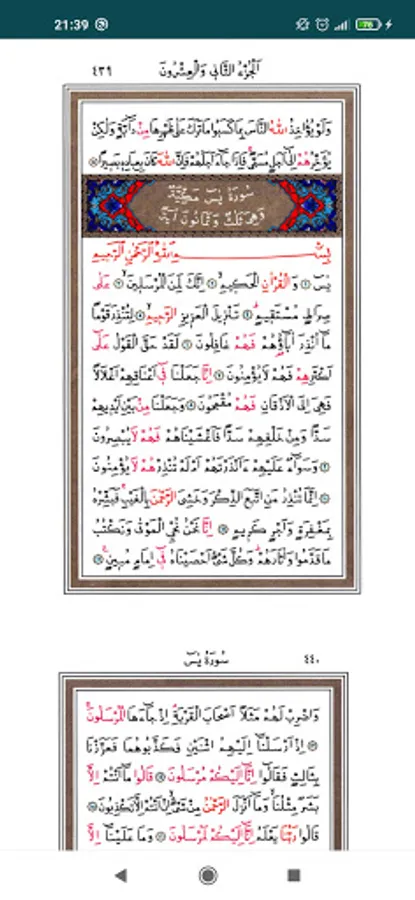 21:39
76
٤٣٩ اَلْجُزْءُ الثَّانِى وَالْعِشْرُونَ
وَلَوْ يُؤَاخِذُ اللّٰهُ النَّاسَ بِمَا كَسَبُوا مَا تَرَكَ عَلٰى ظَهْرِهَا مِنْ دَٓابَّةٍ وَلٰكِنْ
يُؤَخِّرُهُمْ اِلٰٓى اَجَلٍ مُسَمًّى فَاِذَا جَٓاءَ اَجَلُهُمْ فَاِنَّ اللّٰهَ كَانَ بِعِبَادِه۪ بَص۪يرًا
سُورَةُ يٰسٓ مَكِّيَّةٌ
وَهِىَ ثَلٰثٌ وَثَمَانُونَ اٰيَةً
بِسْمِ اللّٰهِ الرَّحْمٰنِ الرَّح۪يمِ
يٰسٓ ﴿١﴾ وَالْقُرْاٰنِ الْحَك۪يمِ ﴿٢﴾ اِنَّكَ لَمِنَ الْمُرْسَل۪ينَ ﴿٣﴾ عَلٰى
صِرَاطٍ مُسْتَق۪يمٍ ﴿٤﴾ تَنْز۪يلَ الْعَز۪يزِ الرَّح۪يمِ ﴿٥﴾ لِتُنْذِرَ قَوْمًا
مَٓا اُنْذِرَ اٰبَٓاؤُ۬هُمْ فَهُمْ غَافِلُونَ ﴿٦﴾ لَقَدْ حَقَّ الْقَوْلُ عَلٰٓى
اَكْثَرِهِمْ فَهُمْ لَا يُؤْمِنُونَ ﴿٧﴾ اِنَّا جَعَلْنَا ف۪ٓى اَعْنَاقِهِمْ اَغْلَالًا
فَهِىَ اِلَى الْاَذْقَانِ فَهُمْ مُقْمَحُونَ ﴿٨﴾ وَجَعَلْنَا مِنْ بَيْنِ اَيْد۪يهِمْ
سَدًّا وَمِنْ خَلْفِهِمْ سَدًّا فَاَغْشَيْنَاهُمْ فَهُمْ لَا يُبْصِرُونَ
﴿٩﴾ وَسَوَٓاءٌ عَلَيْهِمْ ءَاَنْذَرْتَهُمْ اَمْ لَمْ تُنْذِرْهُمْ لَا يُؤْمِنُونَ
﴿١٠﴾ اِنَّمَا تُنْذِرُ مَنِ اتَّبَعَ الذِّكْرَ وَخَشِىَ الرَّحْمٰنَ بِالْغَيْبِ فَبَشِّرْهُ
بِمَغْفِرَةٍ وَاَجْرٍ كَر۪يمٍ ﴿١١﴾ اِنَّا نَحْنُ نُحْيِى الْمَوْتٰى وَنَكْتُبُ
مَا قَدَّمُوا وَاٰثَارَهُمْ وَكُلَّ شَىْءٍ اَحْصَيْنَاهُ ف۪ٓى اِمَامٍ مُب۪ينٍ ﴿١٢﴾
٤٤٠ سُورَةُ يٰسٓ
وَاضْرِبْ لَهُمْ مَثَلًا اَصْحَابَ الْقَرْيَةِ اِذْ جَٓاءَهَا الْمُرْسَلُونَ
﴿١٣﴾ اِذْ اَرْسَلْنَٓا اِلَيْهِمُ اثْنَيْنِ فَكَذَّبُوهُمَا فَعَزَّزْنَا
بِثَالِثٍ فَقَالُٓوا اِنَّٓا اِلَيْكُمْ مُرْسَلُونَ ﴿١٤﴾ قَالُوا مَٓا اَنْتُمْ اِلَّا
بَشَرٌ مِثْلُنَا وَمَٓا اَنْزَلَ الرَّحْمٰنُ مِنْ شَىْءٍ اِنْ اَنْتُمْ اِلَّا تَكْذِبُونَ ﴿١٥﴾
قَالُوا رَبُّنَا يَعْلَمُ اِنَّٓا اِلَيْكُمْ لَمُرْسَلُونَ ﴿١٦﴾ وَمَا عَلَيْنَٓا اِلَّا